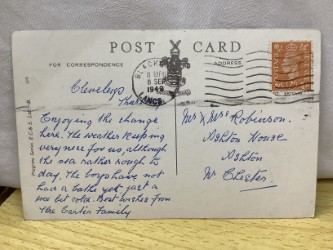 POST CARD
FOR CORRESPONDENCE
ADDRESS
BLACKPOOL
8 SEP
1949
LANCS.
Cleveleys
Thurs
Enjoying the change
here. The weather keeping
very nice for us, although
the sea rather rough to
day. The boys have not
had a bathe yet, just a
wee bit cold. Best wishes from
The Carter Family
Mr & Mrs Robinson.
Ashton House
Ashton
Nr Chester.